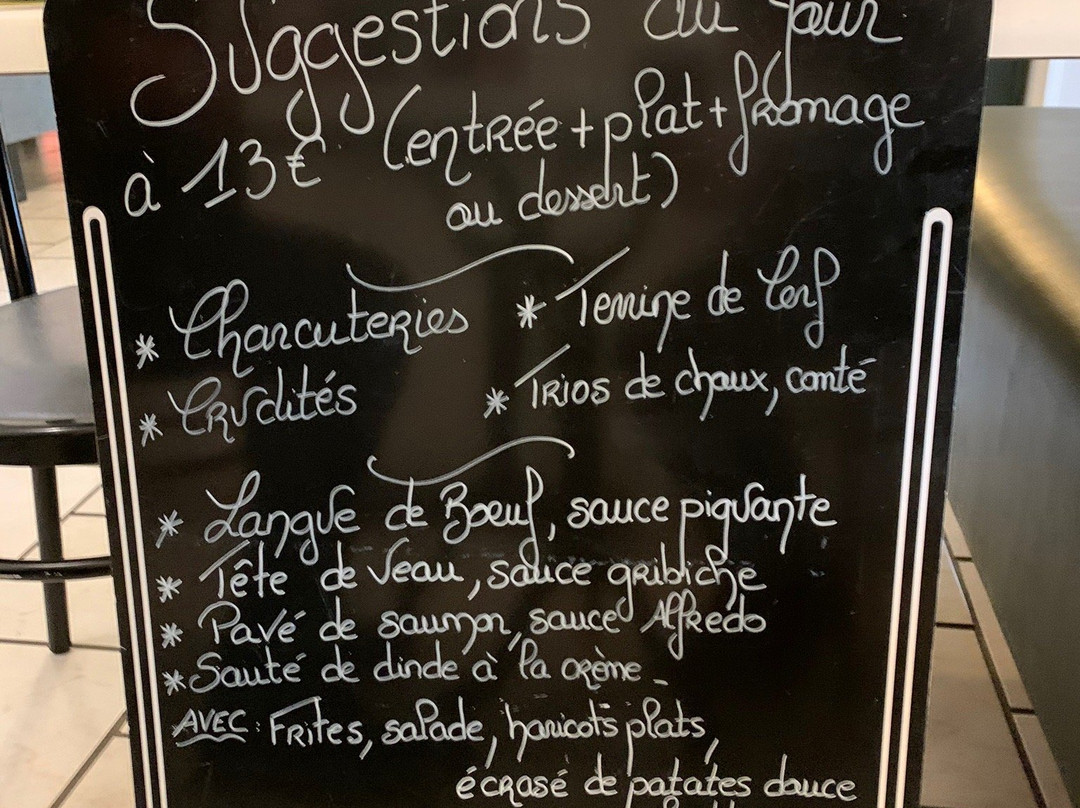 Suggestions du jour
à 13€ (entrée + plat + fromage
ou dessert)
* Charcuteries * Terrine de Cerf
* Crudités * Trios de choux, comté
* Langue de Boeuf, sauce piquante
* Tête de veau, sauce gribiche
* Pavé de saumon, sauce Alfredo
* Sauté de dinde à la crème -
AVEC : Frites, salade, haricots plats,
écrasé de patates douce